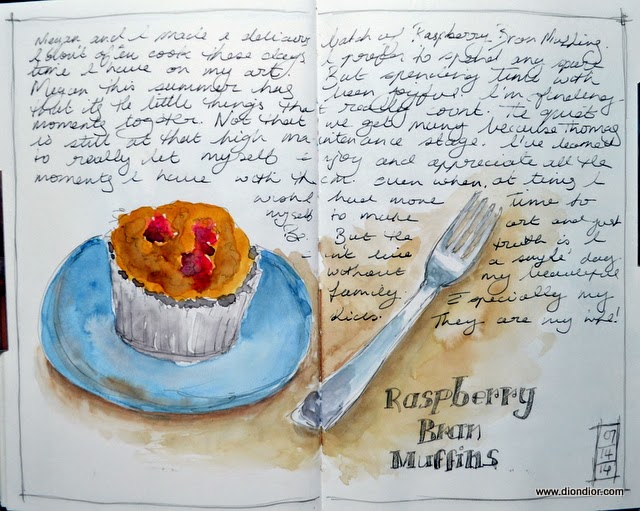 Megan and I made a delicious batch of "Raspberry" Bran Muffins.
I don't often cook these days I prefer to spend any spare
time I have on my art. But spending time with
Megan this summer has been joyful. I'm finding
that it's the little things that really count. The quiet
moments together. Not that we get many because Thomas
is still at that high maintenance stage. I've learned
to really let myself enjoy and appreciate all the
moments I have with them. Even when, at times I
wish I had more time to
myself to make art and just
Be. But the truth is I
live a single day
without my beautiful
family. Especially my
kids. They are my
Raspberry
Bran
Muffins
07
14
14
www.diondior.com